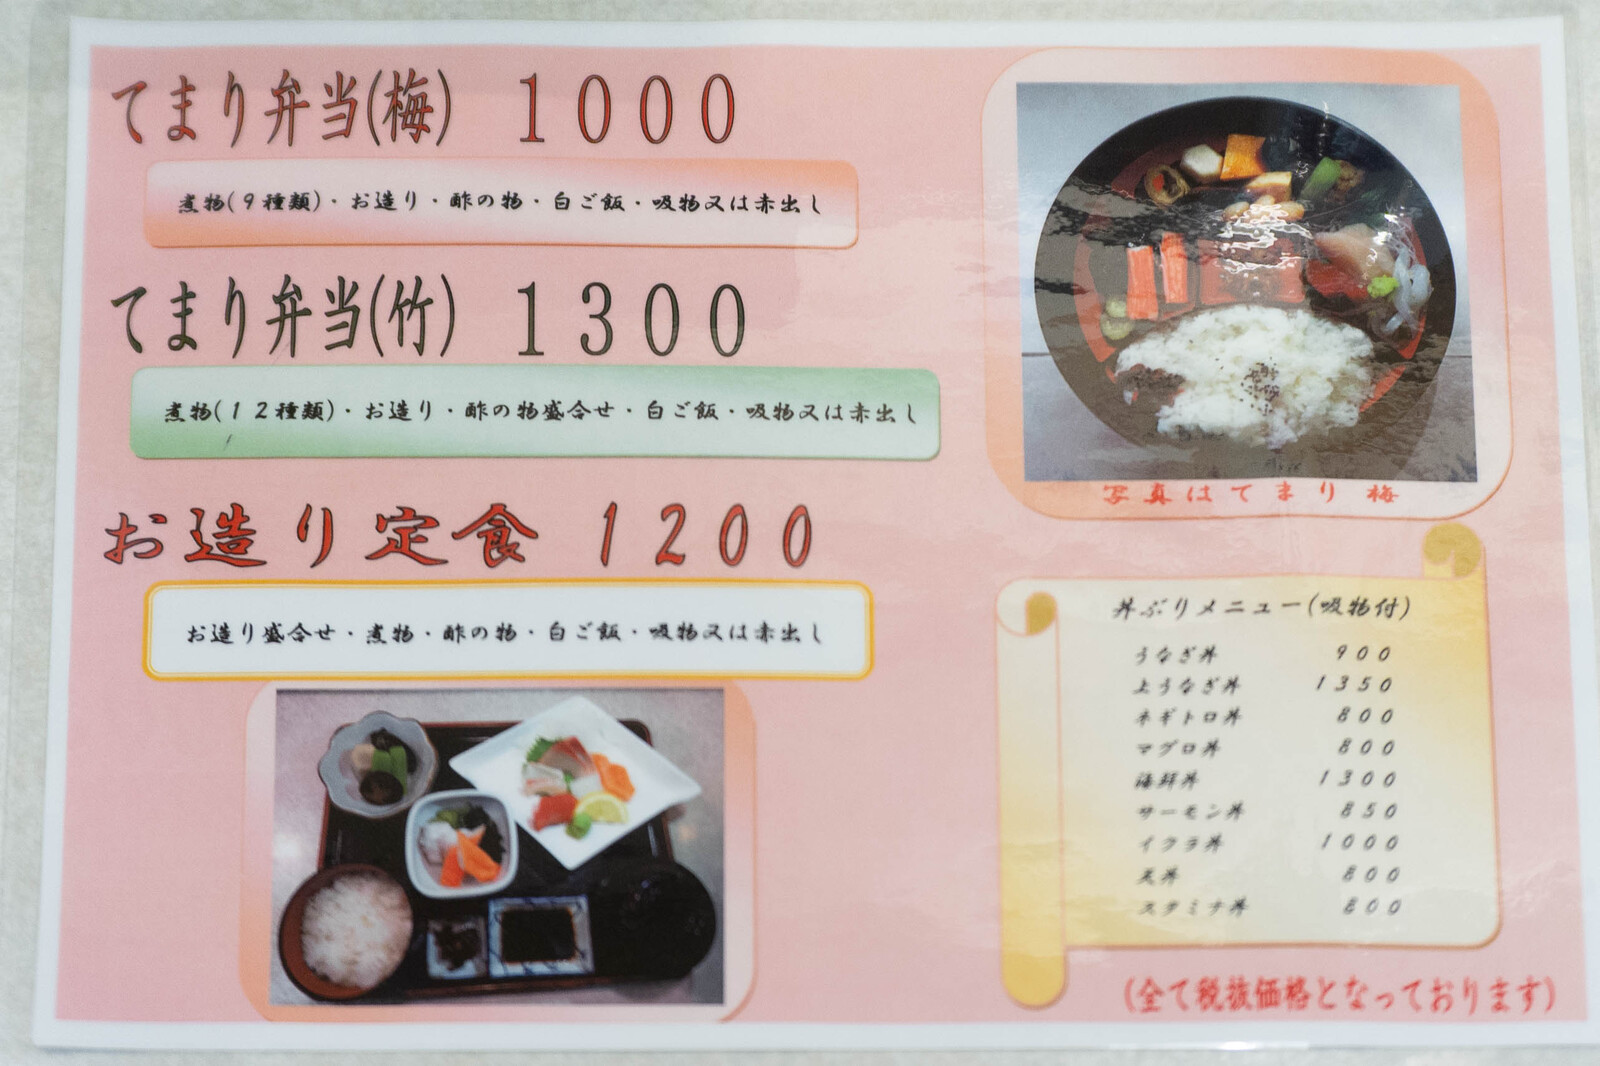 てまり弁当(梅) 1000
煮物(9種類)・お造り・酢の物・白ご飯・吸物又は赤出し
てまり弁当(竹) 1300
煮物(12種類)・お造り・酢の物盛合せ・白ご飯・吸物又は赤出し
お造り定食 1200
お造り盛合せ・煮物・酢の物・白ご飯・吸物又は赤出し
写真はてまり 梅
丼ぶりメニュー(吸物付)
うなぎ丼 900
上うなぎ丼 1350
ネギトロ丼 800
マグロ丼 800
海鮮丼 1300
サーモン丼 850
イクラ丼 1000
天丼 800
スタミナ丼 800
(全て税抜価格となっております)